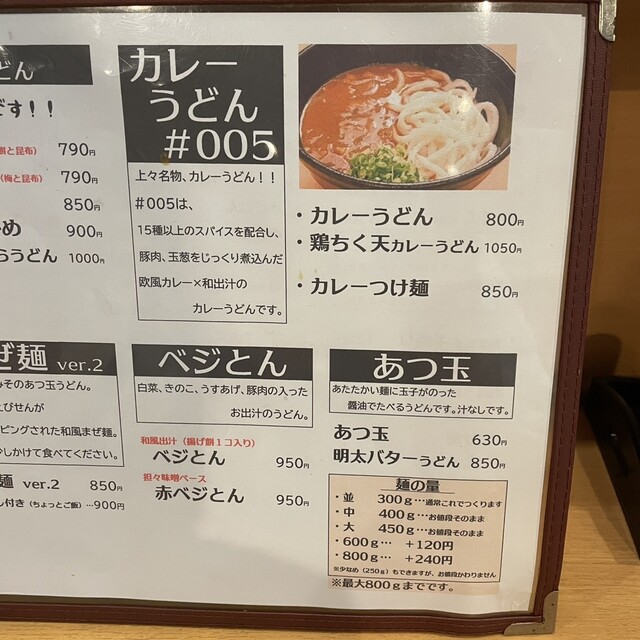 どん
です！！
(梅と昆布)
790円
790円
850円
900円
うどん 1000円
カレー
うどん
#005
上々名物、カレーうどん！！
#005は、
15種以上のスパイスを配合し、
豚肉、玉葱をじっくり煮込んだ
欧風カレー×和出汁の
カレーうどんです。
・カレーうどん 800円
・鶏ちく天カレーうどん 1050円
・カレーつけ麺 850円
ぜ麺 ver.2
みそのあつ玉うどん。
えびせんが
ピングされた和風まぜ麺。
少しかけて食べてください。
麺 ver.2 850円
し付き (ちょっとご飯) …900円
ベジとん
白菜、きのこ、うすあげ、豚肉の入った
お出汁のうどん。
和風出汁（揚げ餅１コ入り）
ベジとん 950円
担々味噌ベース
赤ベジとん 950円
あつ玉
あたたかい麺に玉子がのった
醤油でたべるうどんです。汁なしです。
あつ玉 630円
明太バターうどん 850円
麺の量
・並 300g…通常これでつくります
・中 400g…お値段そのまま
・大 450g…お値段そのまま
・600g… +120円
・800g… +240円
※少なめ（250g）もできますが、お値段かわりません
※最大800gまでです。